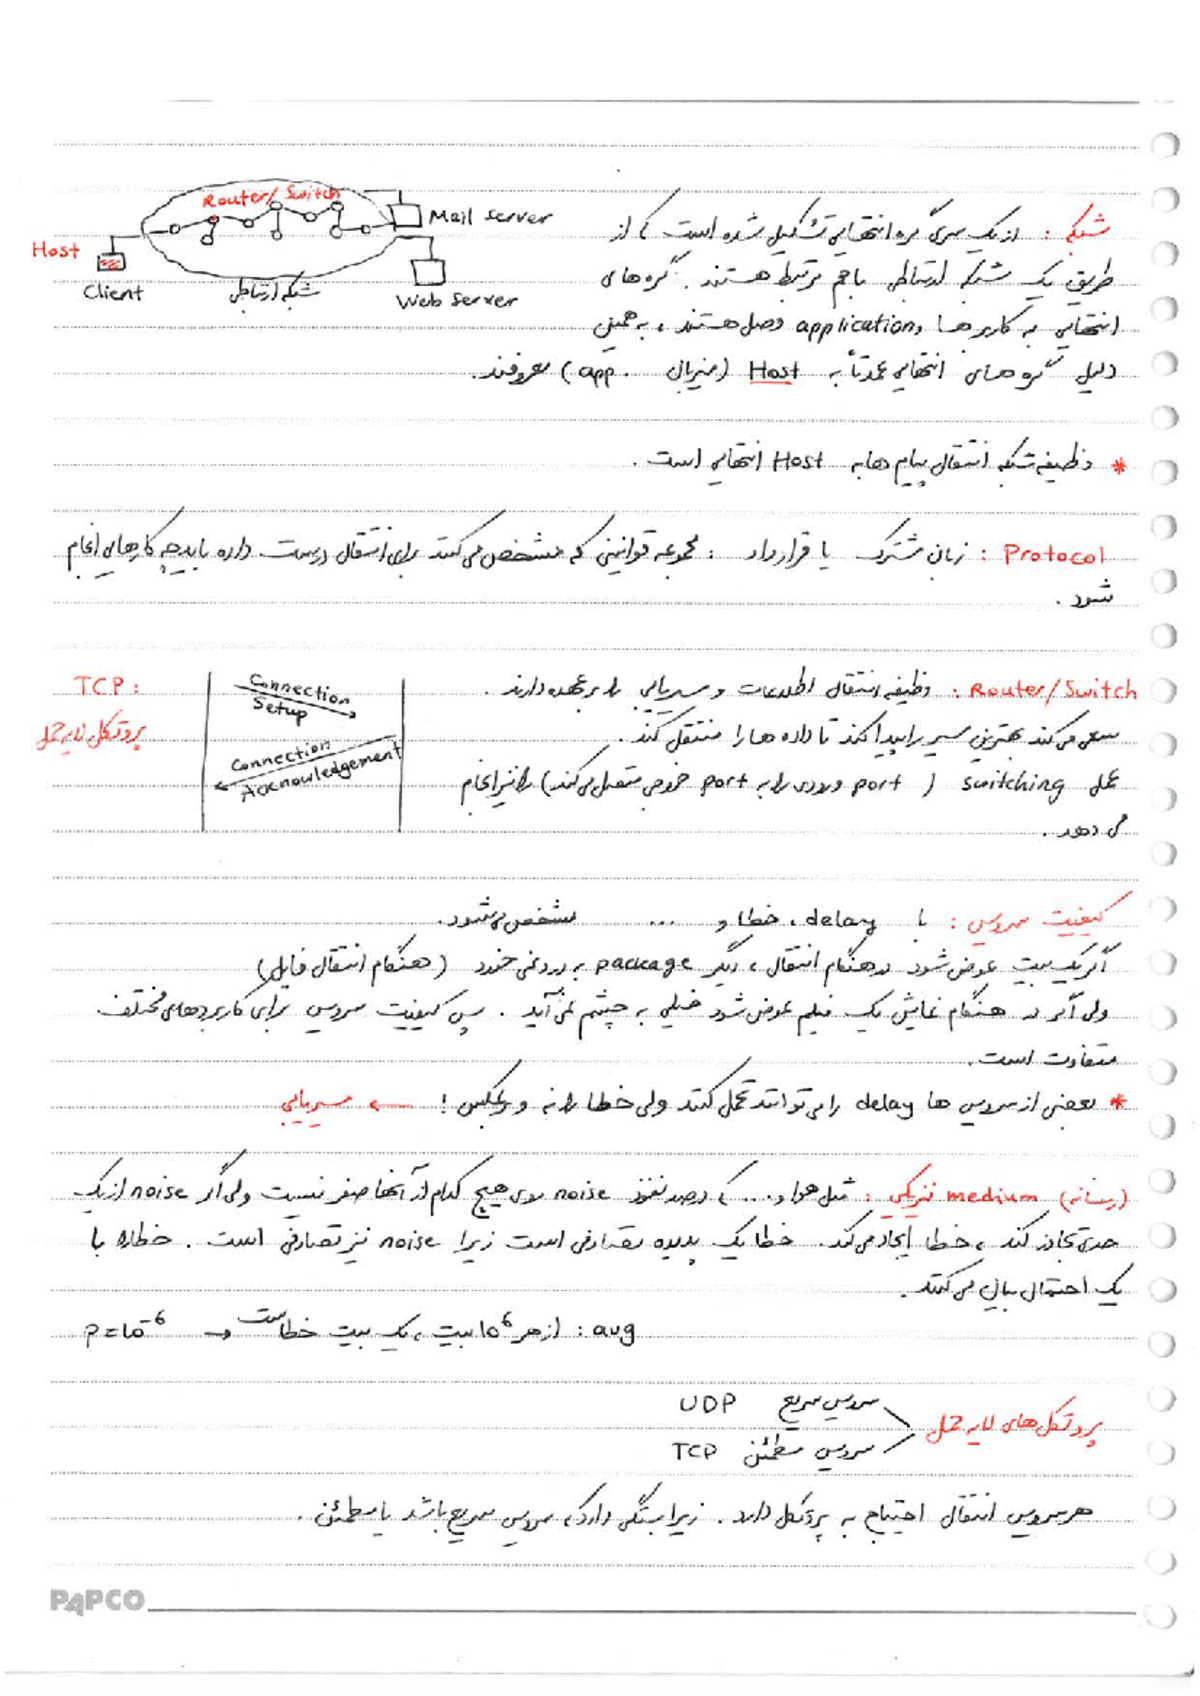 Router/Switch
Mail server
Host
Client
شبکه ارتباطی
Web server
شبکه : از یک سری گره انتهایی تشکیل شده است که از
طریق یک شبکه ارتباطی باهم مرتبط هستند. گره های
انتهایی به کاربرها و application وصل هستند ، به همین
دلیل گره های انتهایی عمدتاً به Host (میزبان app.) معروفند.
* وظیفه شبکه انتقال پیام ها به Host انتهایی است .
Protocol : زبان مشترک یا قرارداد : مجموعه قوانینی که مشخص می کنند برای انتقال درست داده باید چه کارهایی انجام
شود .
Router/Switch : وظیفه انتقال اطلاعات و مسیریابی را بر عهده دارند .
سعی می کند بهترین مسیر را پیدا کند تا داده ها را منتقل کند .
عمل switching ( port ورودی را به port خروجی منتقل می کند) را نیز انجام
می دهد .
TCP :
پروتکل لایه حمل
Connection
Setup
Connection
Acknowledgement
کیفیت سرویس : با delay ، خطا و ... مشخص می شود.
اگر یک بیت عوض شود در هنگام انتقال ، دیگر package به درد نمی خورد (هنگام انتقال فایل)
ولی اگر در هنگام نمایش یک فیلم عوض شود خیلی به چشم نمی آید . پس کیفیت سرویس برای کاربردهای مختلف
متفاوت است.
* بعضی از سرویس ها delay را می توانند تحمل کنند ولی خطا را نه و برعکس ! ← مسیریابی
(رسانه) medium فیزیکی : مثل هوا و... که درصد نفوذ noise روی هیچ کدام از آنها صفر نیست ولی اگر noise از یک
حدی تجاوز کند ، خطا ایجاد می کند. خطا یک پدیده تصادفی است زیرا noise نیز تصادفی است . خطا را با
یک احتمال بیان می کنند.
p=10⁻⁶ → avg : از هر 10⁶ بیت ، یک بیت خطاست
پروتکل های لایه حمل
سرویس سریع UDP
سرویس مطمئن TCP
هر سرویس انتقال احتیاج به پروتکل دارد . زیرا بستگی دارد که سرویس سریع باشد یا مطمئن .
PAPCO